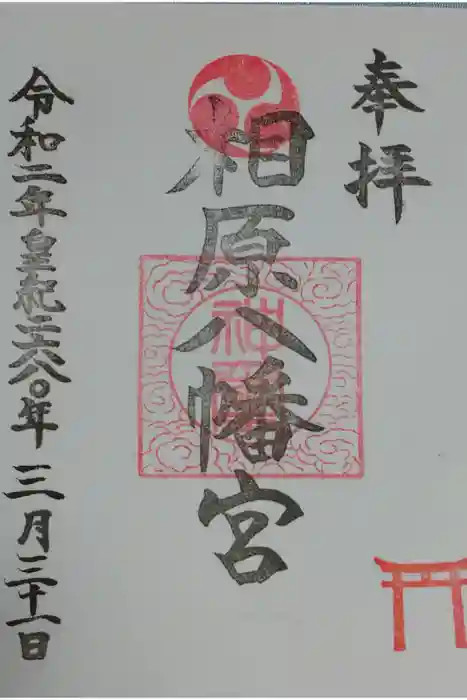 奉拝
柏原八幡宮
令和二年皇紀二六八〇年三月三十一日